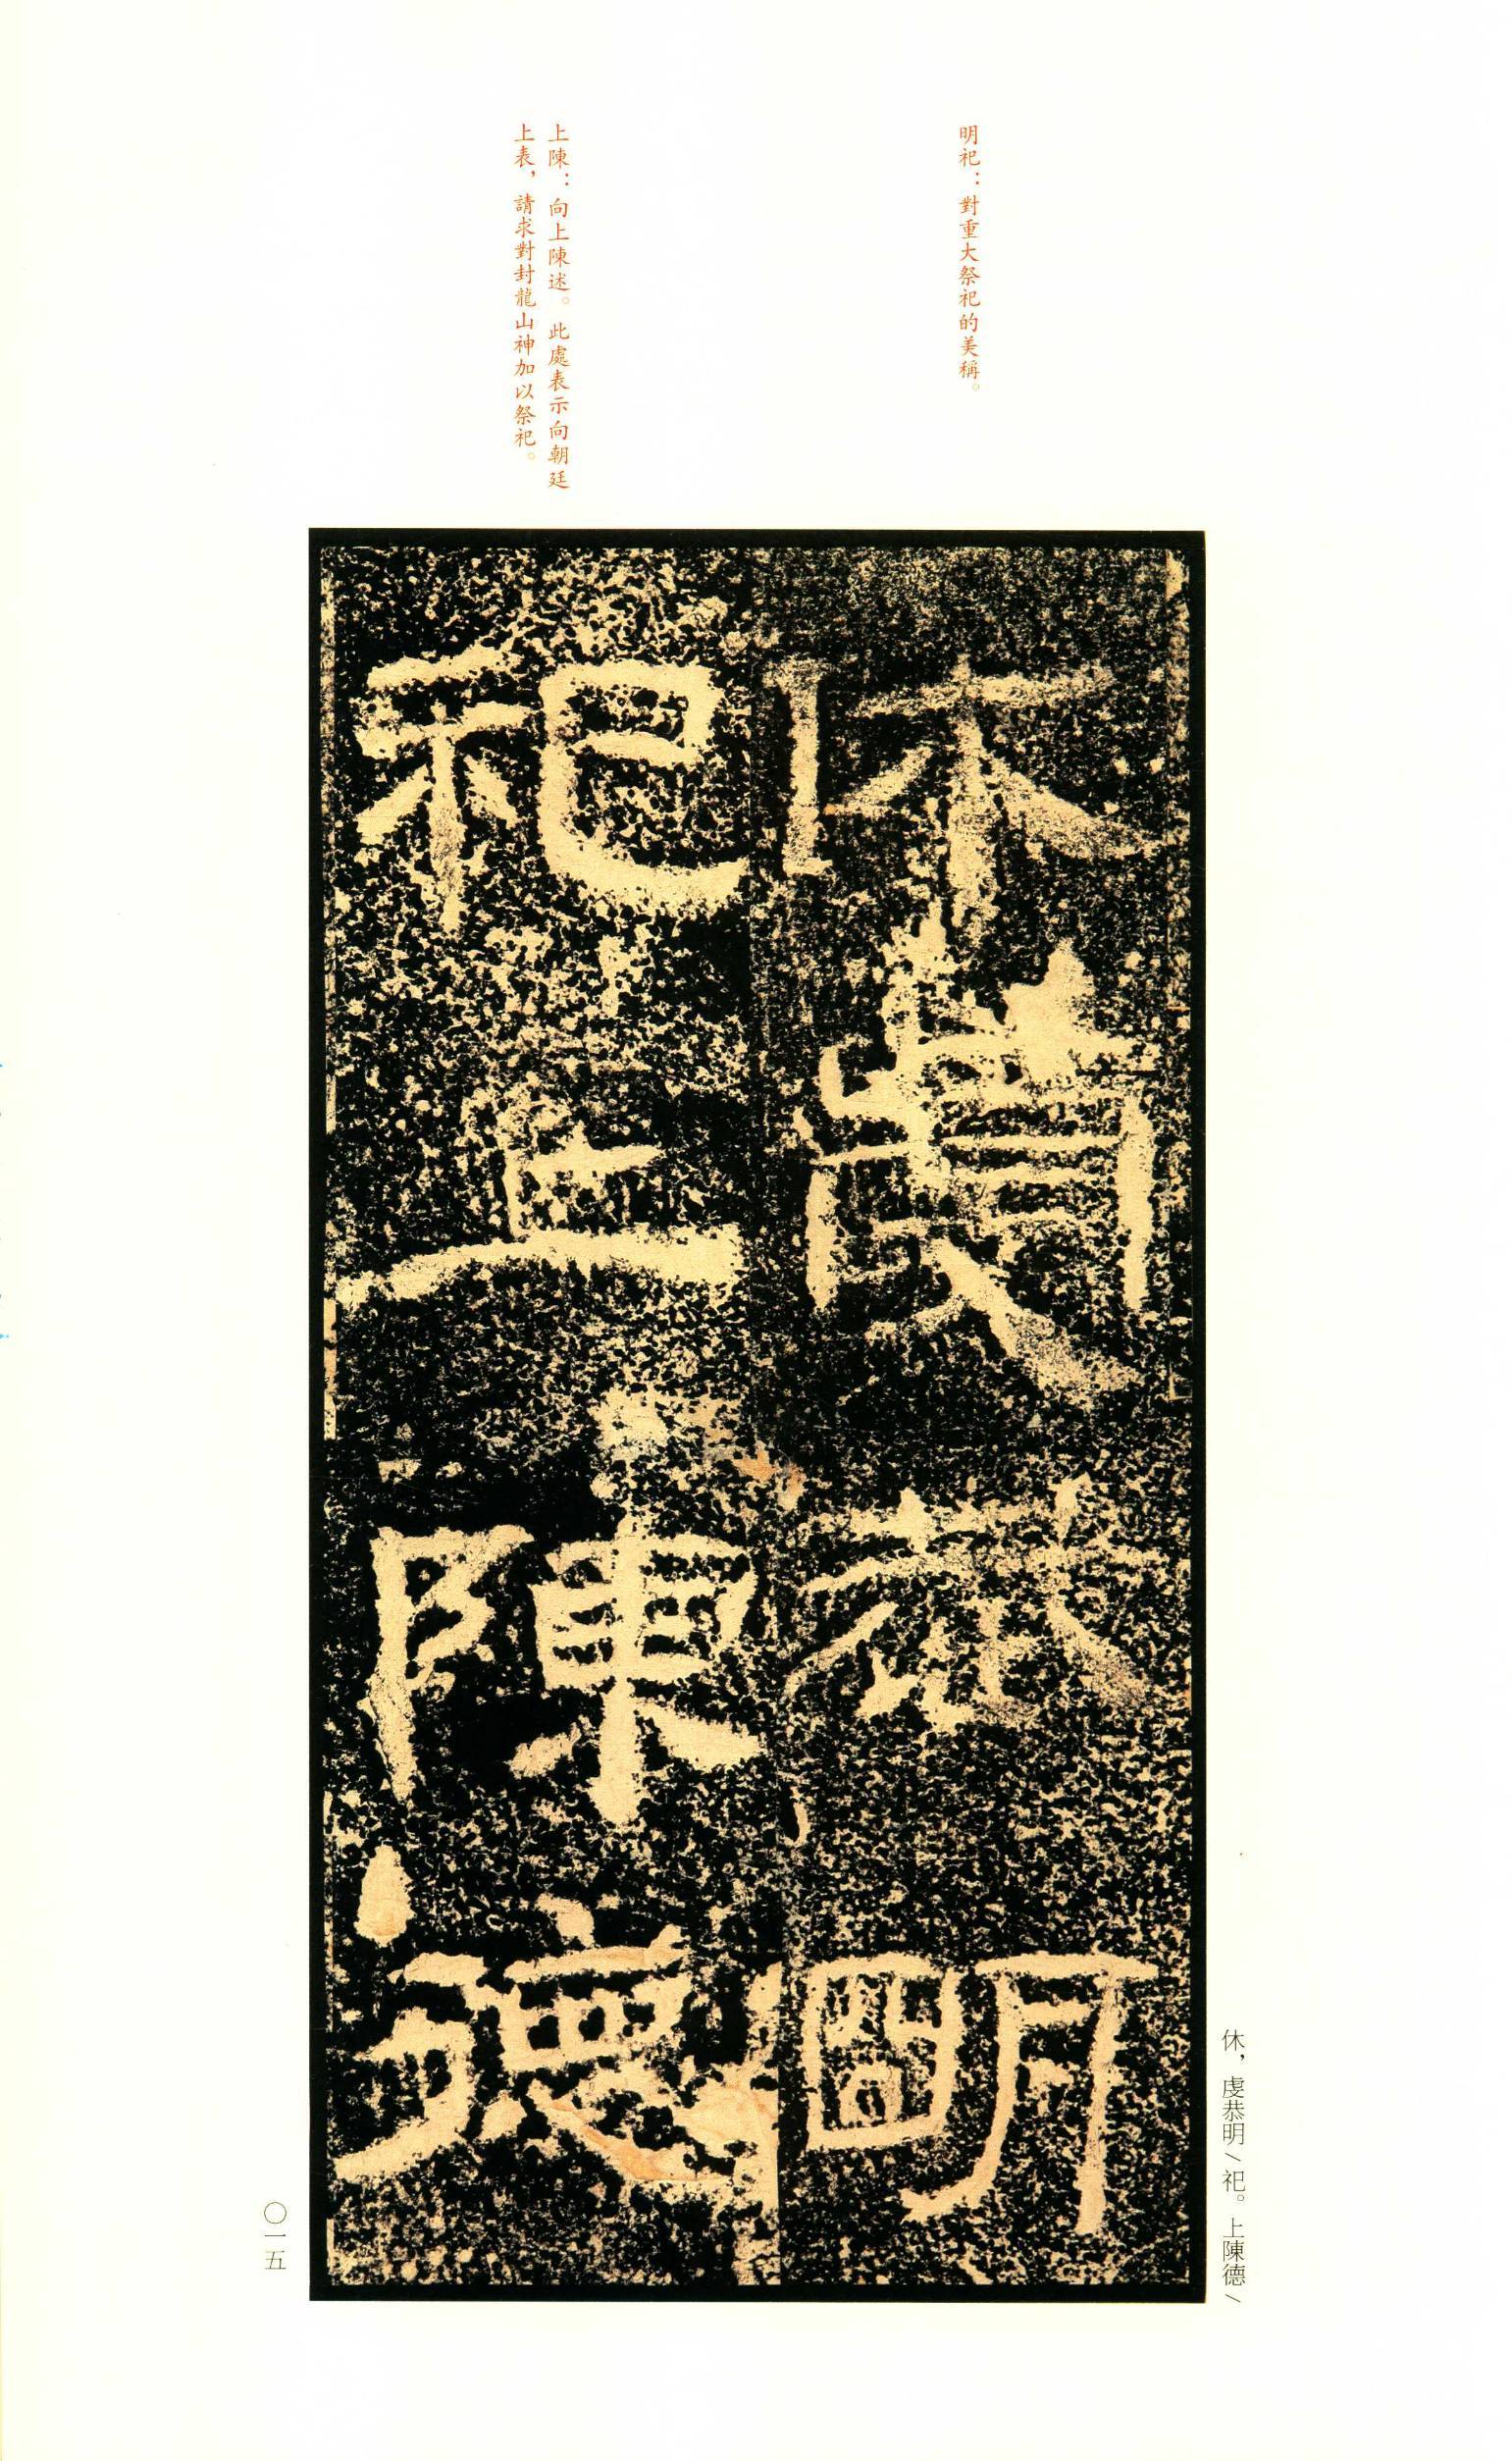 明祀：對重大祭祀的美稱。
上陳：向上陳述。此處表示向朝廷
上表，請求對封龍山神加以祭祀。
休虔恭明
祀上陳德
休，虔恭明／祀。上陳德／
〇一五